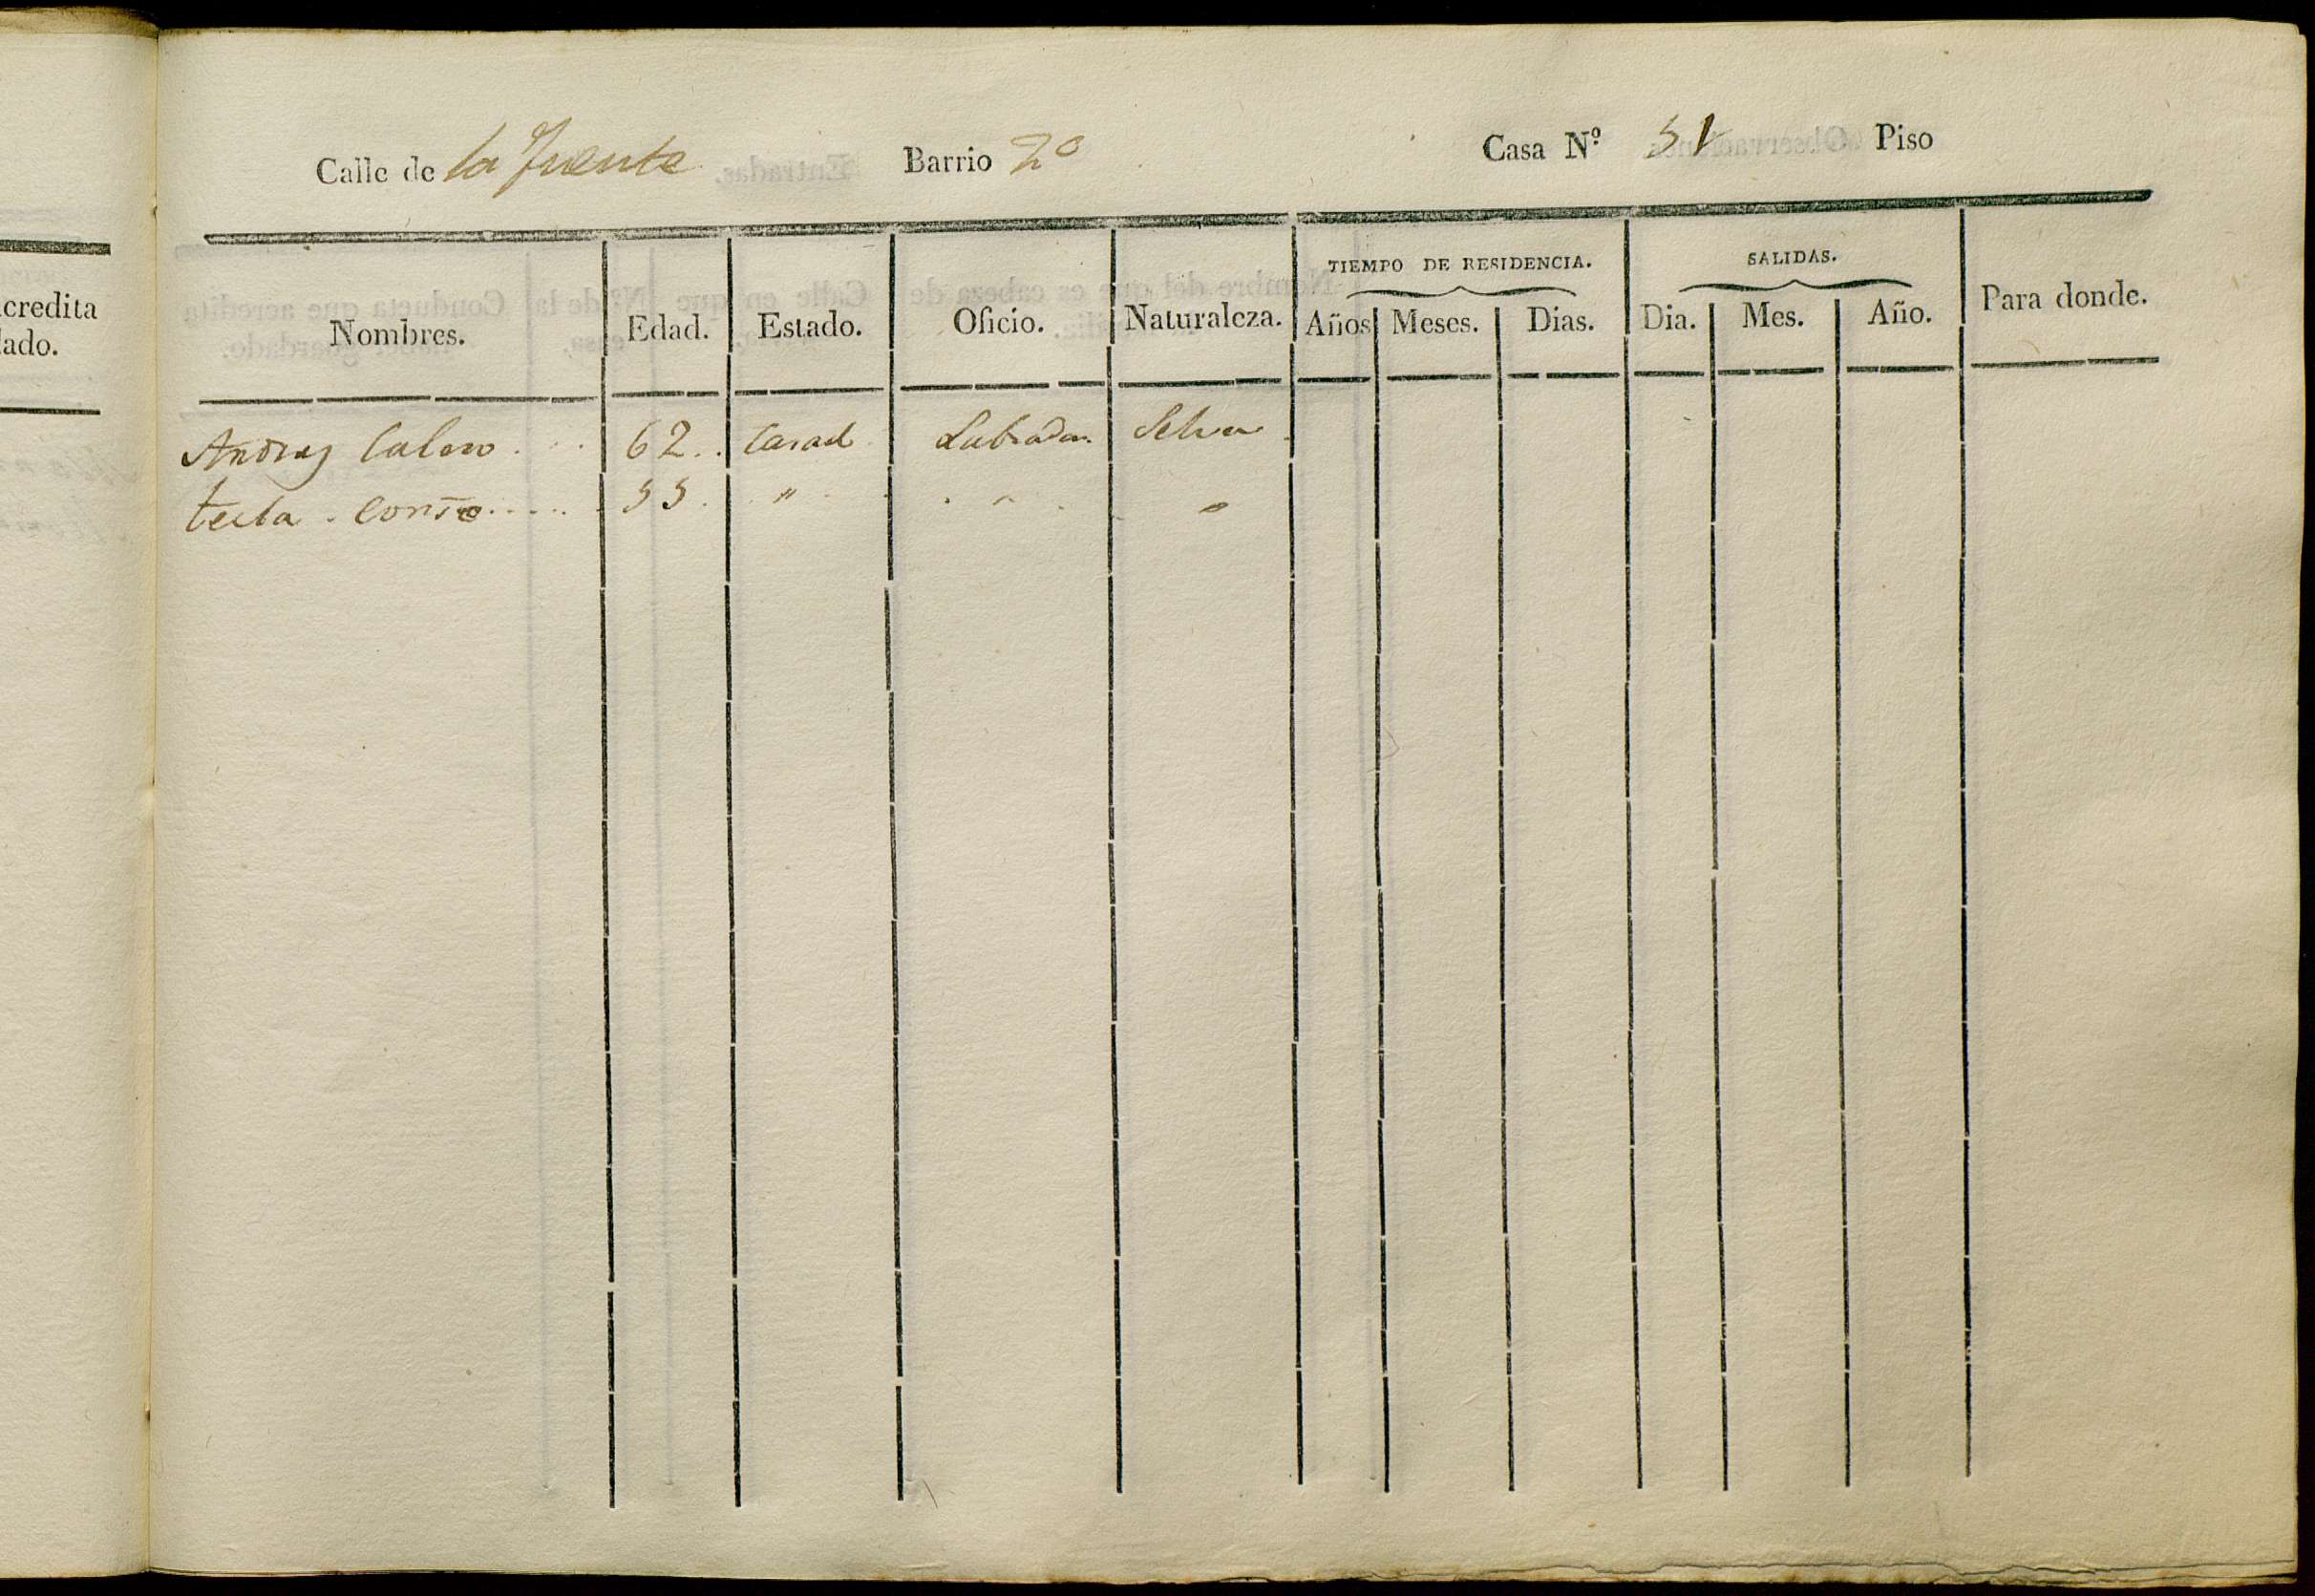 credita
lado.
Calle de la Fuente Barrio 2º Casa Nº 51 Piso
TIEMPO DE RESIDENCIA. SALIDAS.
Nombres. Edad. Estado. Oficio. Naturaleza. Años Meses. Dias. Dia. Mes. Año. Para donde.
Andres 62.. Casad Labrador. Selva
tecla. 55. " " "